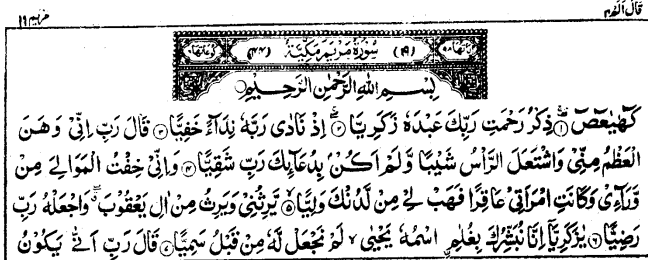 قال الم    مريم ١٩
اٰیاتها ٩٨ (١٩) سُوۡرَةُ مَرۡيَمَ مَكِّيَّةٌ (٤٤) رکوعاتها ٦
بِسۡمِ اللهِ الرَّحۡمٰنِ الرَّحِيۡمِ
كٓهٰيٰعٓصٓ ۚ۱ ذِكۡرُ رَحۡمَتِ رَبِّكَ عَبۡدَهٗ زَكَرِيَّا ۚ۲ اِذۡ نَادٰى رَبَّهٗ نِدَآءً خَفِيًّا ۳ قَالَ رَبِّ اِنِّىۡ وَهَنَ
الۡعَظۡمُ مِنِّىۡ وَاشۡتَعَلَ الرَّاۡسُ شَيۡبًا وَّلَمۡ اَكُنۡۢ بِدُعَآئِكَ رَبِّ شَقِيًّا ۴ وَاِنِّىۡ خِفۡتُ الۡمَوَالِىَ مِنۡ
وَّرَآءِىۡ وَكَانَتِ امۡرَاَتِىۡ عَاقِرًا فَهَبۡ لِىۡ مِنۡ لَّدُنۡكَ وَلِيًّا ۵ يَّرِثُنِىۡ وَيَرِثُ مِنۡ اٰلِ يَعۡقُوۡبَ ۖ وَاجۡعَلۡهُ رَبِّ
رَضِيًّا ۶ يٰزَكَرِيَّاۤ اِنَّا نُبَشِّرُكَ بِغُلٰمِ ۨاسۡمُهٗ يَحۡيٰى ۙ لَمۡ نَجۡعَلْ لَّهٗ مِنۡ قَبۡلُ سَمِيًّا ۷ قَالَ رَبِّ اَنّٰى يَكُوۡنُ